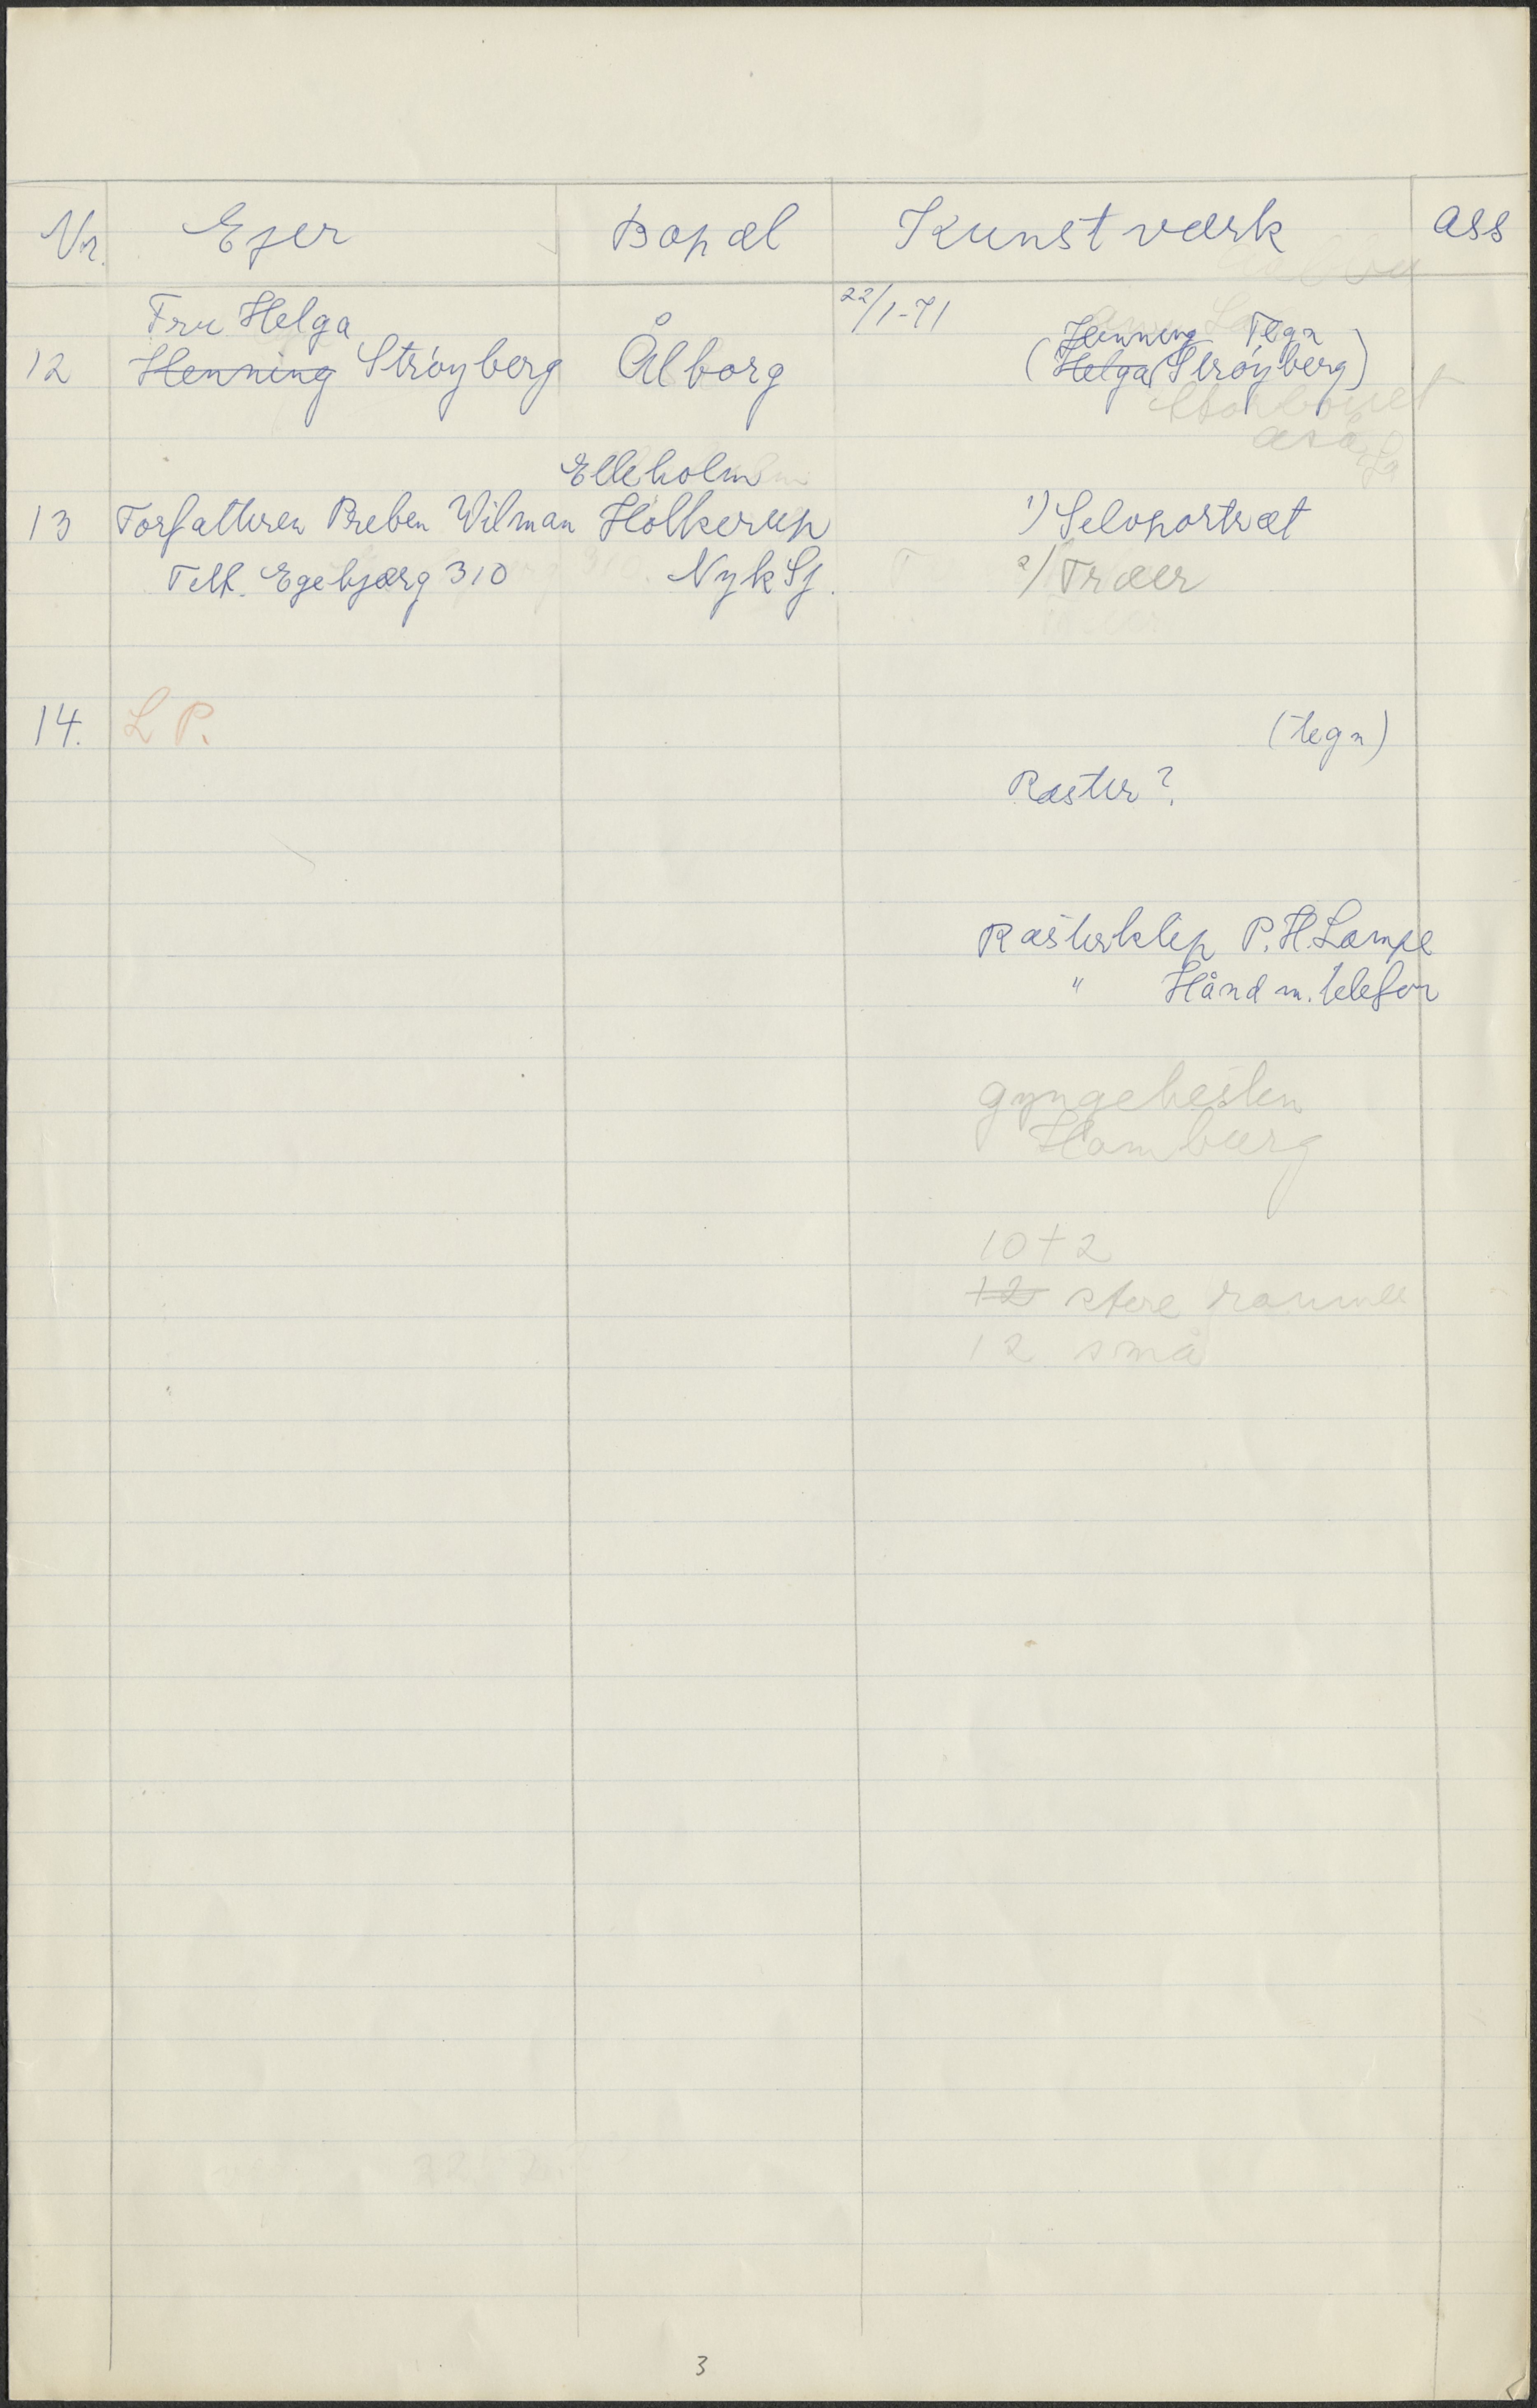 Nr. Ejer Bopæl Kunstværk Ass
Fru Helga 22/1-71 Henning Tegn
12 Henning Strøyberg Ålborg (Helga Strøyberg)
Elleholm
13 Forfatteren Preben Wilman Holkerup 1) Selvportræt
Telf. Egebjærg 310 Nyk Sj. 2) Træer
14. L P. (tegn)
Raster?
Rasterklip P.H. Lampe
" Hånd m. telefon
gyngehesten
Hamburg
10+2
12 store ramme
12 små
3